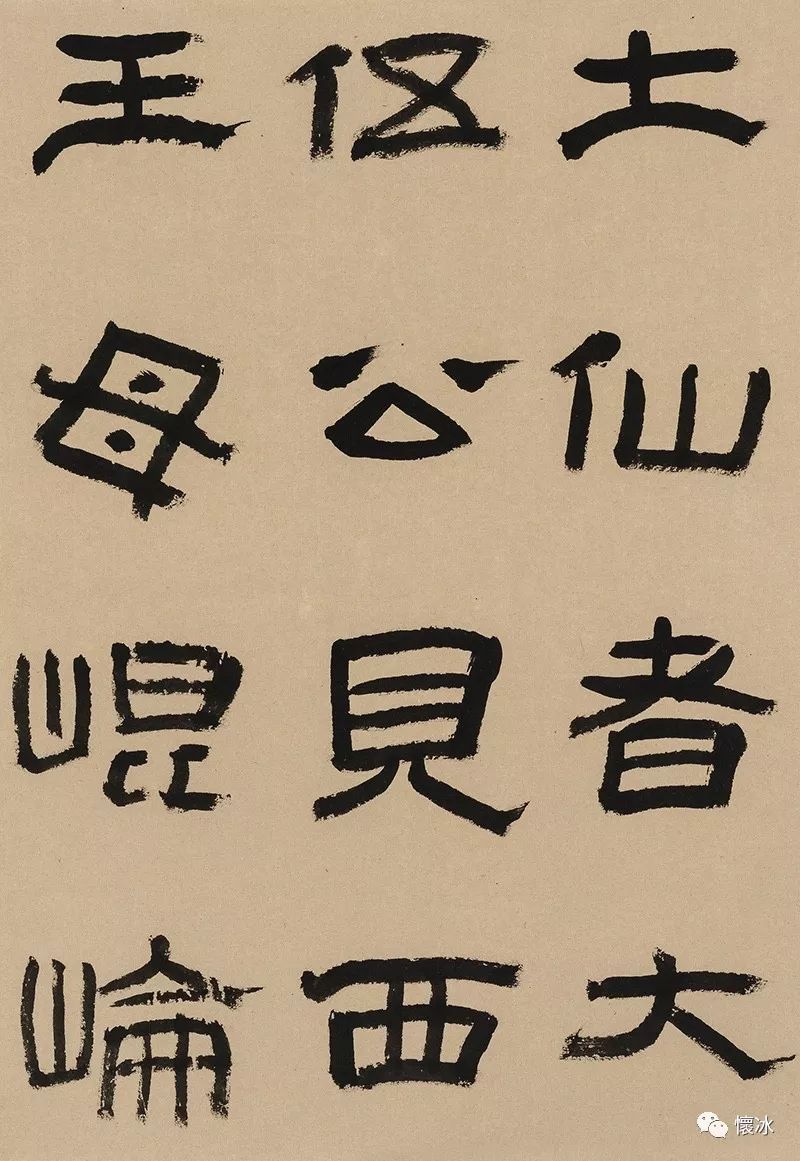 土仙者大
伍公見西
王母崐崘
懷冰